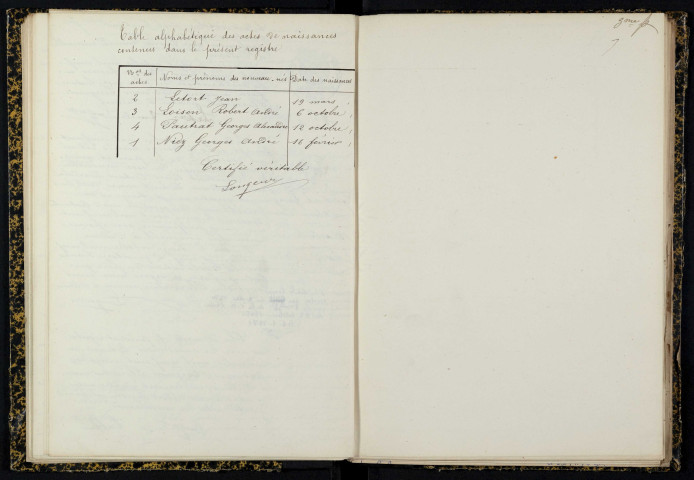 Table alphabétique des actes de naissances
contenus dans le présent registre
Nos des actes Noms et prénoms des nouveau-nés Date des naissances
2 Letort Jean 19 mars
3 Loison Robert André 6 octobre
4 Pautrat Georges Alexandre 12 octobre
1 Niez Georges André 18 février
Certifié véritable